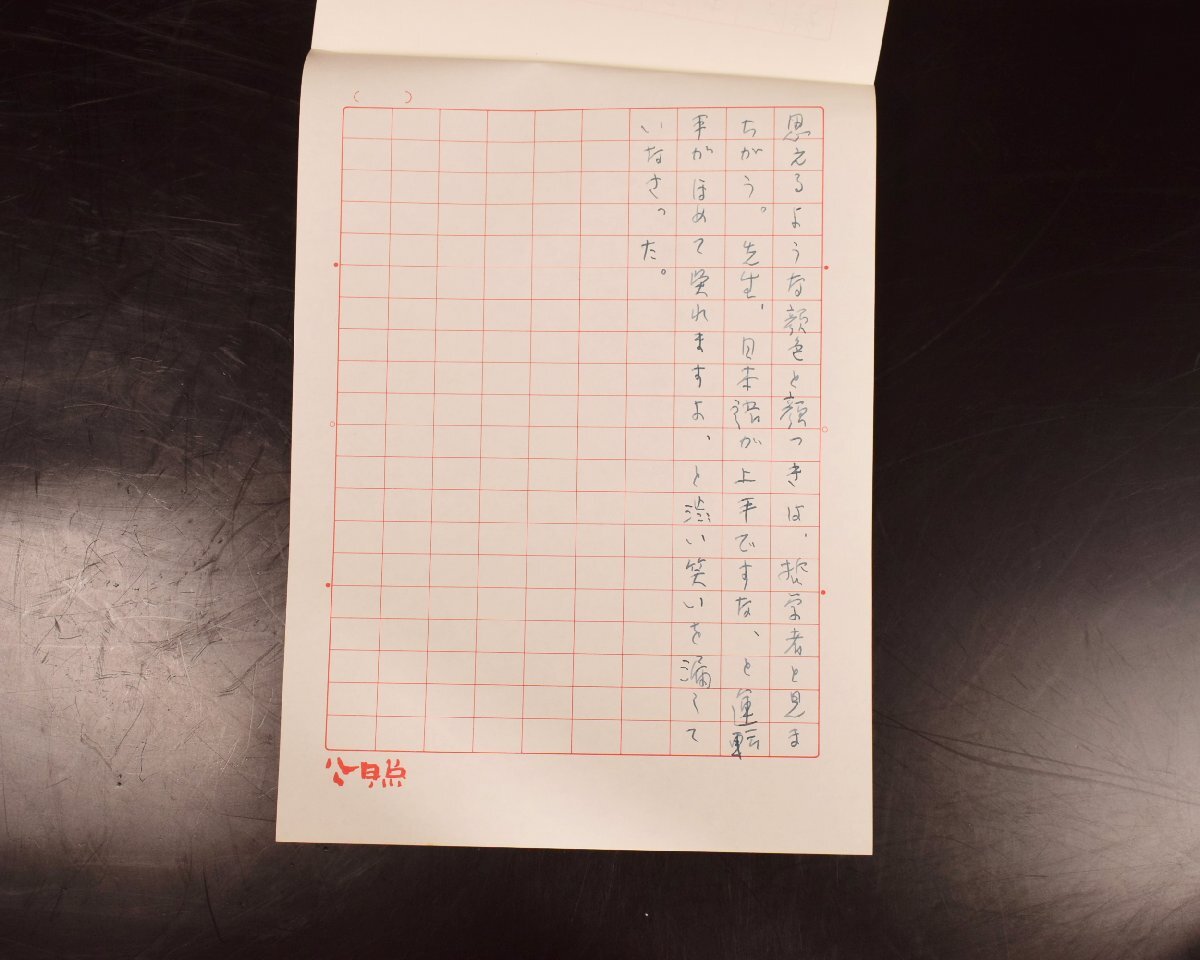 思えるような顔色と顔つきは、哲学者と見ま
ちがう。先生、日本語が上手ですな、と運転
手がほめて呉れますよ、と渋い笑いを漏して
いなさった。